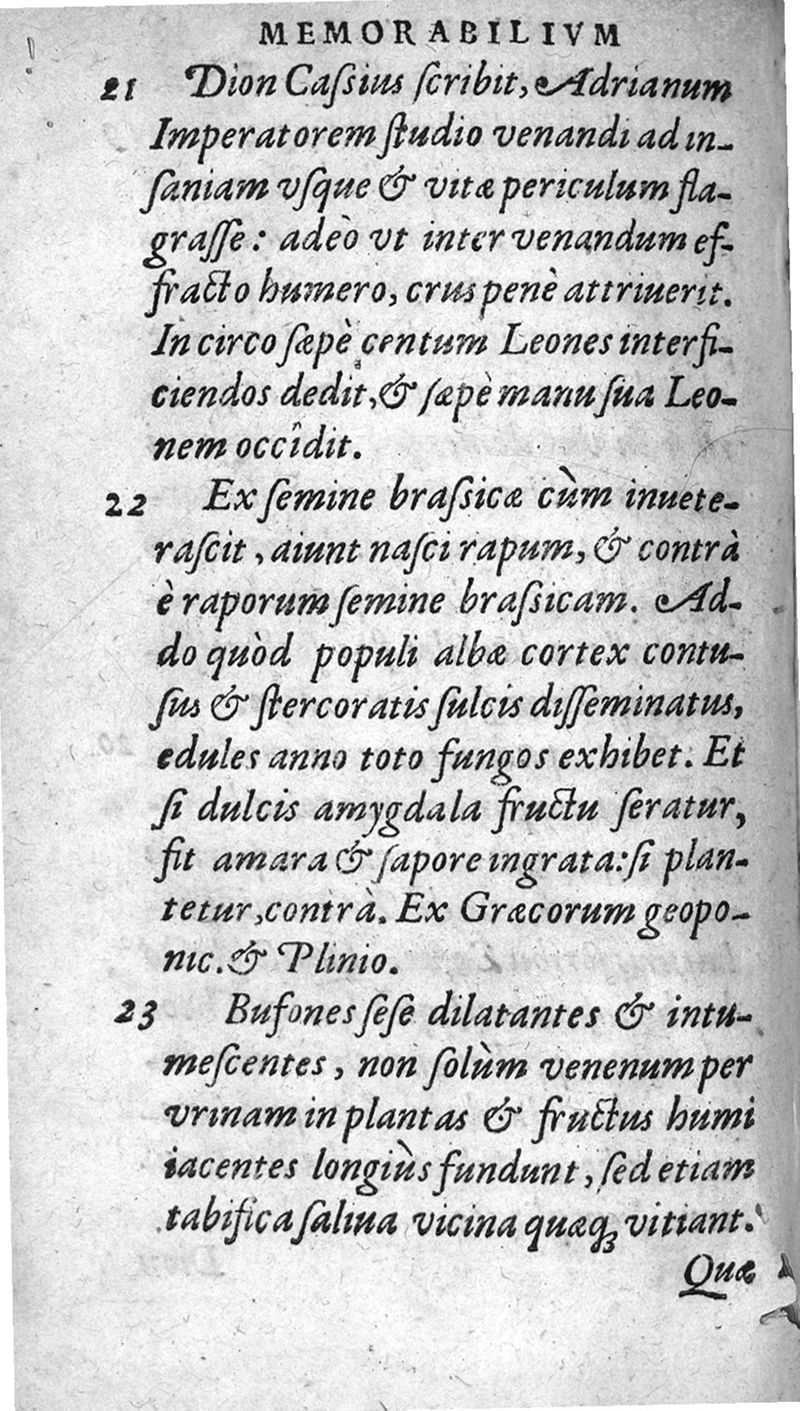 MEMORABILIVM
21 Dion Caſsius ſcribit, Adrianum
Imperatorem ſtudio venandi ad in-
ſaniam vſque & vitæ periculum fla-
graſſe: adeò vt inter venandum ef-
fracto humero, crus penè attriuerit.
In circo ſæpè centum Leones interfi-
ciendos dedit, & ſæpè manu ſua Leo-
nem occîdit.
22 Ex ſemine braſsicæ cùm inuete-
raſcit, aiunt naſci rapum, & contrà
è raporum ſemine braſsicam. Ad-
do quòd populi albæ cortex contu-
ſus & ſtercoratis ſulcis diſſeminatus,
edules anno toto fungos exhibet. Et
ſi dulcis amygdala fructu ſeratur,
fit amara & ſapore ingrata: ſi plan-
tetur, contrà. Ex Græcorum geopo-
nic. & Plinio.
23 Bufones ſeſe dilatantes & intu-
meſcentes, non ſolùm venenum per
vrinam in plantas & fructus humi
iacentes longiùs fundunt, ſed etiam
tabifica ſaliua vicina quæq; vitiant.
Quæ